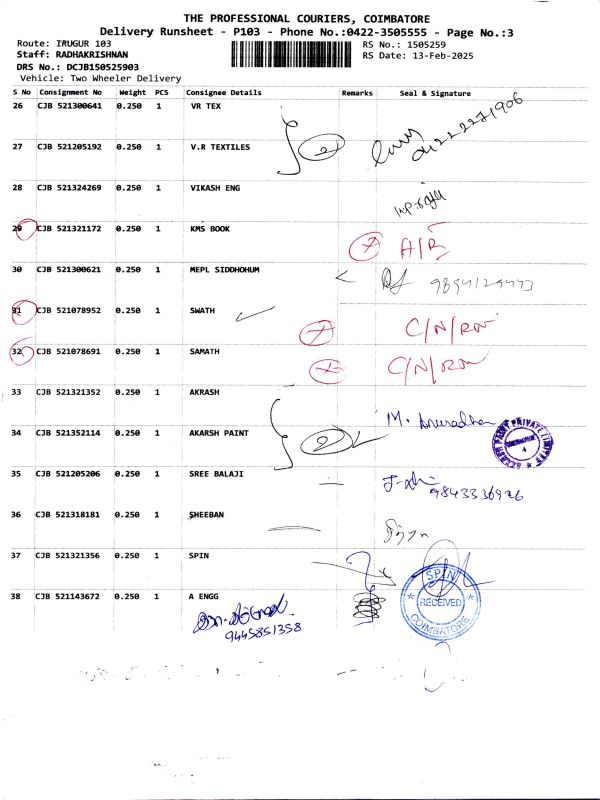 THE PROFESSIONAL COURIERS, COIMBATORE
Delivery Runsheet - P103 - Phone No.:0422-3505555 - Page No.:3
Route: IRUGUR 103
RS No.: 1505259
Staff: RADHAKRISHNAN
RS Date: 13-Feb-2025
DRS No.: DCJB150525903
Vehicle: Two Wheeler Delivery
S No Consignment No Weight PCS Consignee Details Remarks Seal & Signature
26 CJB 521300641 0.250 1 VR TEX
2
0422 2271906
27 CJB 521205192 0.250 1 V.R TEXTILES
28 CJB 521324269 0.250 1 VIKASH ENG
29 CJB 521321172 0.250 1 KMS BOOK
A/R
30 CJB 521300621 0.250 1 MEPL SIDDHOHUM
31 CJB 521078952 0.250 1 SWATH
C/N/RN
32 CJB 521078691 0.250 1 SAMATH
C/N/RN
33 CJB 521321352 0.250 1 AKRASH
M. Anuradha
34 CJB 521352114 0.250 1 AKARSH PAINT
2
AKARSH PAINT PRIVATE LIMITED
35 CJB 521205206 0.250 1 SREE BALAJI
9843336926
36 CJB 521318181 0.250 1 SHEEBAN
37 CJB 521321356 0.250 1 SPIN
SPIN
RECEIVED
COIMBATORE
38 CJB 521143672 0.250 1 A ENGG
9445851358